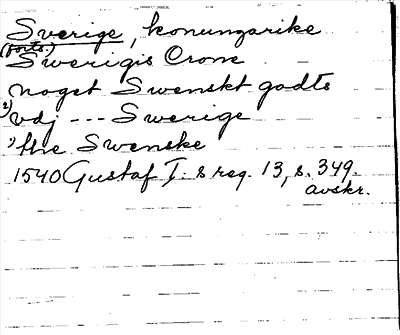 Sverige, konungarike
(forts.)
Swerigis Crone
noget Swenskt godts
2) vdj --- Swerige
1) the Swenske
1540 Gustaf I:s reg. 13, s. 349.
avskr.